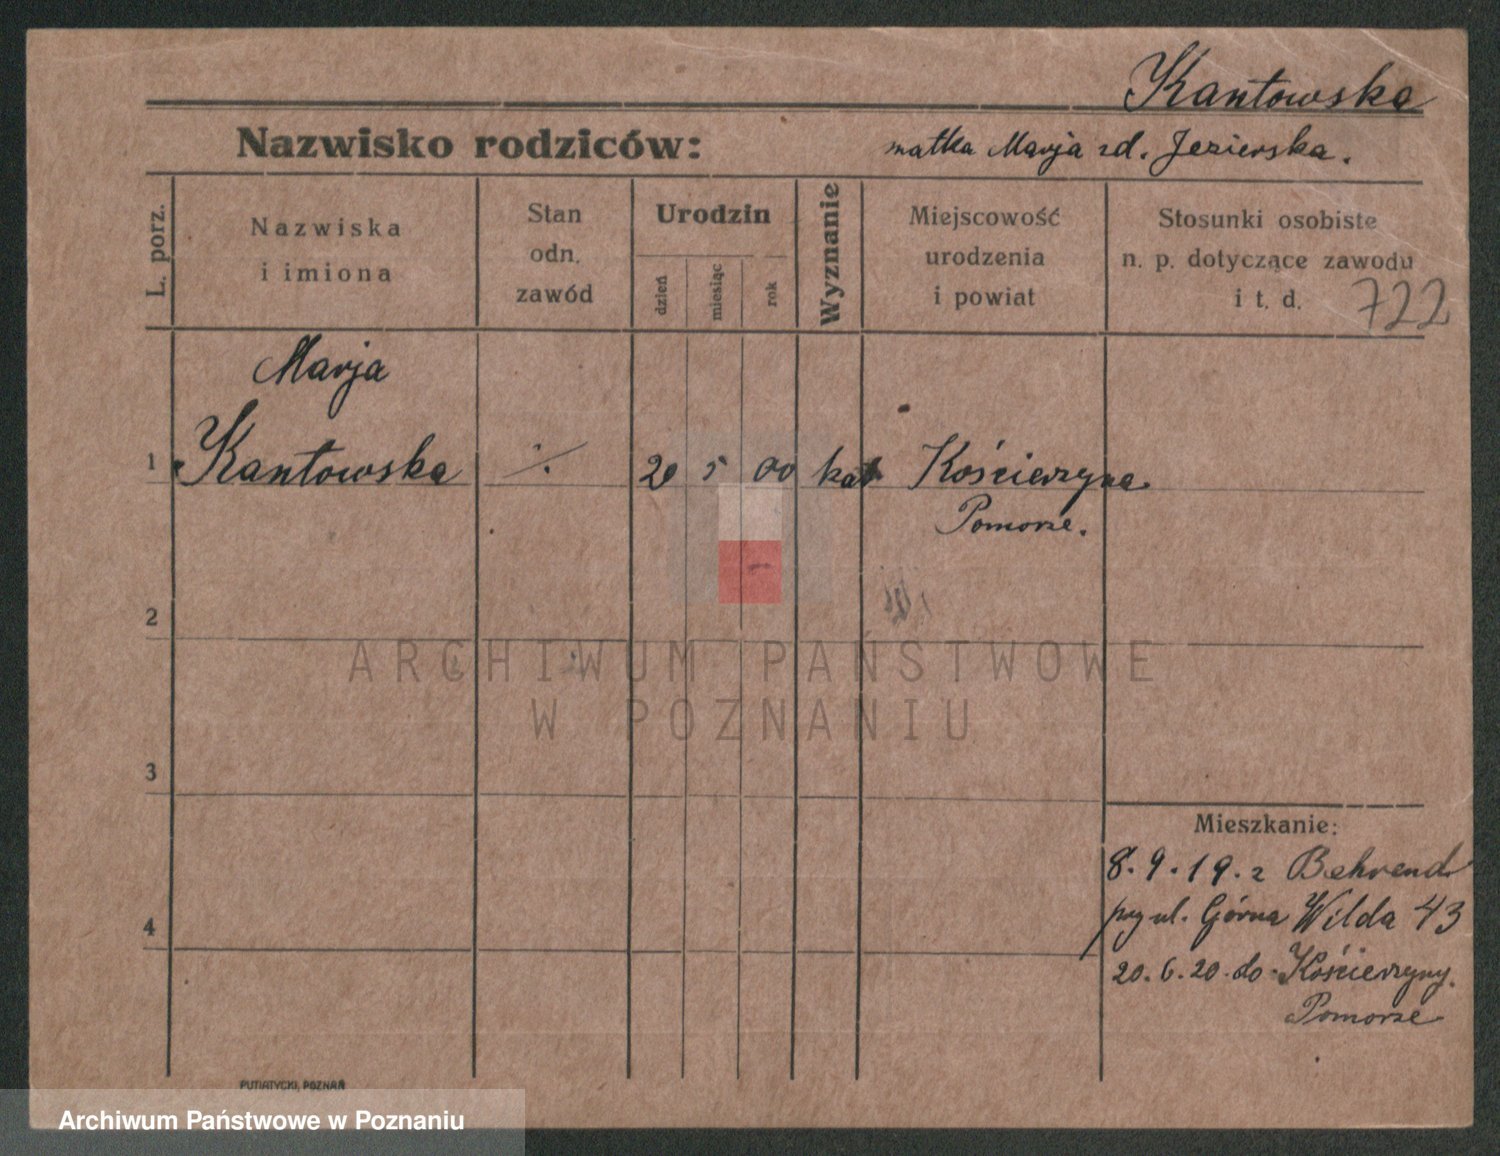 Kantowska
Nazwisko rodziców: matka Marja zd. Jezierska.
L. porz.
Nazwiska
i imiona
Stan
odn.
zawód
Urodzin
dzień
miesiąc
rok
Wyznanie
Miejscowość
urodzenia
i powiat
Stosunki osobiste
n. p. dotyczące zawodu
i t. d. 722
Marja
1 Kantowska ./. 20 5 00 kat Kościerzyna
Pomorze.
2
ARCHIWUM PAŃSTWOWE
W POZNANIU
3
Mieszkanie:
8.9.19. z Behrend
przy ul. Górna Wilda 43
4
20.6.20. do Kościerzyny.
Pomorze
PUTIATYCKI, POZNAŃ
Archiwum Państwowe w Poznaniu